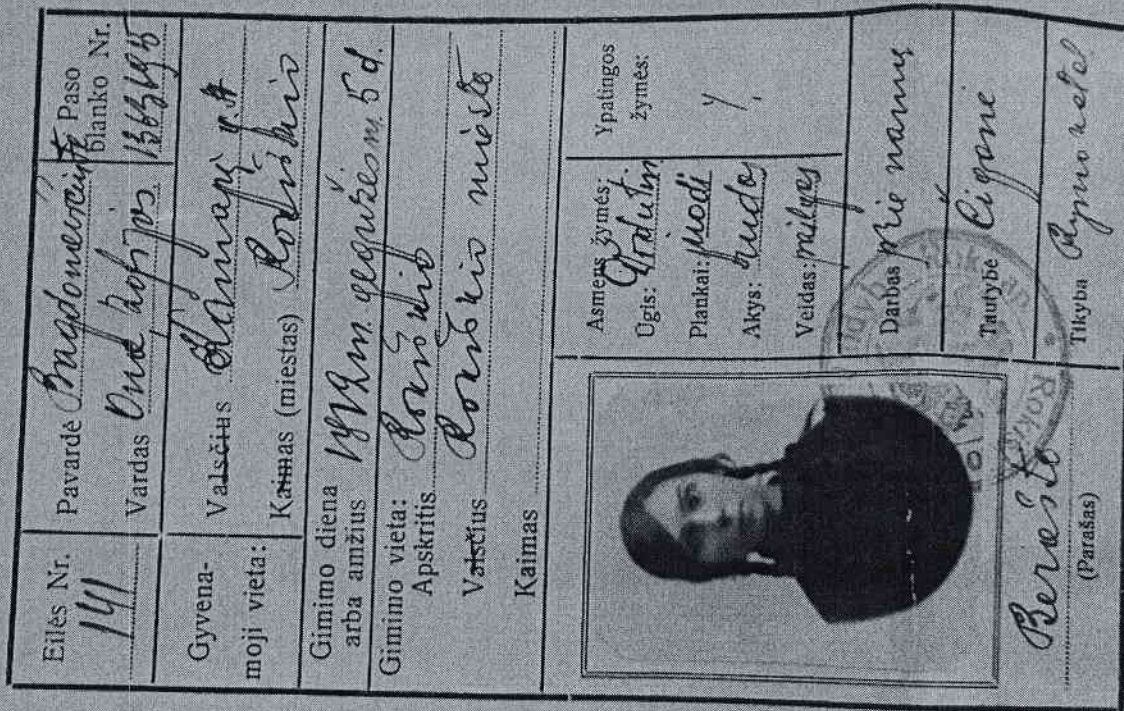 Eilės Nr.
141
Pavardė Bagdonavičiūtė
Vardas Ona, Zofijos
Paso
blanko Nr.
Gyvena-
moji vieta:
Valsčius
Kaimas (miestas) Rokiškio
Gimimo diena
arba amžius m. gegužės m. 5 d.
Gimimo vieta:
Apskritis Rokiškio
Valsčius Rokiškio miesto
Kaimas
Asmens žymės:
Ūgis: Vidutin
Plaukai: juodi
Akys: rudos
Veidas: pailgas
Ypatingos
žymės:
Darbas prie namų
Tautybė Čigonė
Tikyba Rymo katal
Beraštė
(Parašas)